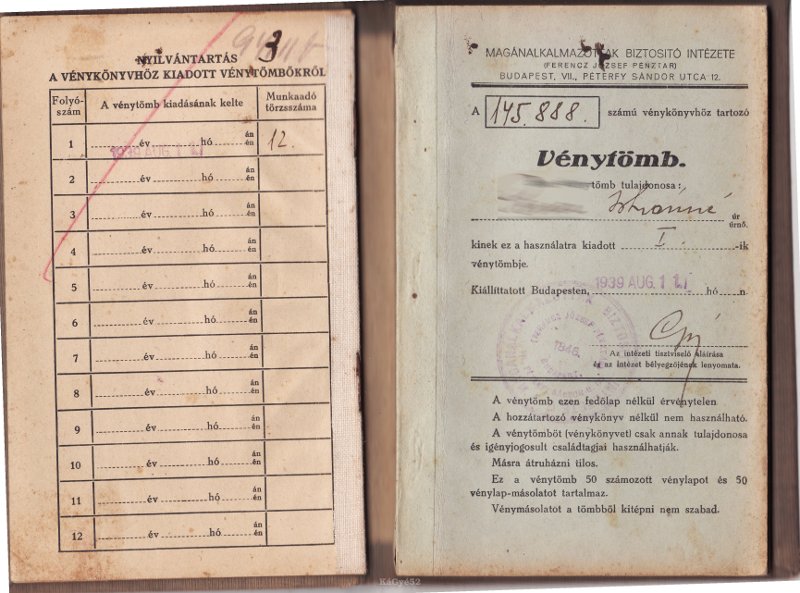 3
NYILVÁNTARTÁS
A VÉNYKÖNYVHÖZ KIADOTT VÉNYTÖMBÖKRŐL
Folyó-szám A vénytömb kiadásának kelte Munkaadó törzsszáma
1 év hó án én 12.
1939 AUG. 11
2 év hó án én
3 év hó án én
4 év hó án én
5 év hó án én
6 év hó án én
7 év hó án én
8 év hó án én
9 év hó án én
10 év hó án én
11 év hó án én
12 év hó án én
MAGÁNALKALMAZOTTAK BIZTOSITÓ INTÉZETE
(FERENCZ JÓZSEF PÉNZTÁR)
BUDAPEST, VII., PÉTERFY SÁNDOR UTCA 12.
A 145.888. számú vénykönyvhöz tartozó
Vénytömb.
tömb tulajdonosa:
Istvánné úr
érnő.
kinek ez a használatra kiadott I. -ik
vénytömbje.
Kiállíttatott Budapesten, 1939 AUG. 11 hó n.
Az intézeti tisztviselő aláírása
és az intézet bélyegzőjének lenyomata.
A vénytömb ezen fedőlap nélkül érvénytelen
A hozzátartozó vénykönyv nélkül nem használható.
A vénytömböt (vénykönyvet) csak annak tulajdonosa
és igényjogosult családtagjai használhatják.
Másra átruházni tilos.
Ez a vénytömb 50 számozott vénylapot és 50
vénylap-másolatot tartalmaz.
Vénymásolatot a tömbből kitépni nem szabad.
KáGyé52